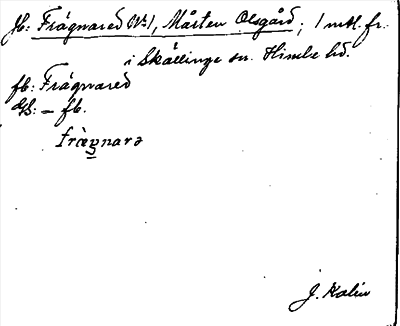 Jb: Frågnared No 1, Mårten Olsgård; 1 mtl. fr.
i Skällinge sn. Himle hd.
fb: Frågnared
GS: – fb.
J. Kalén